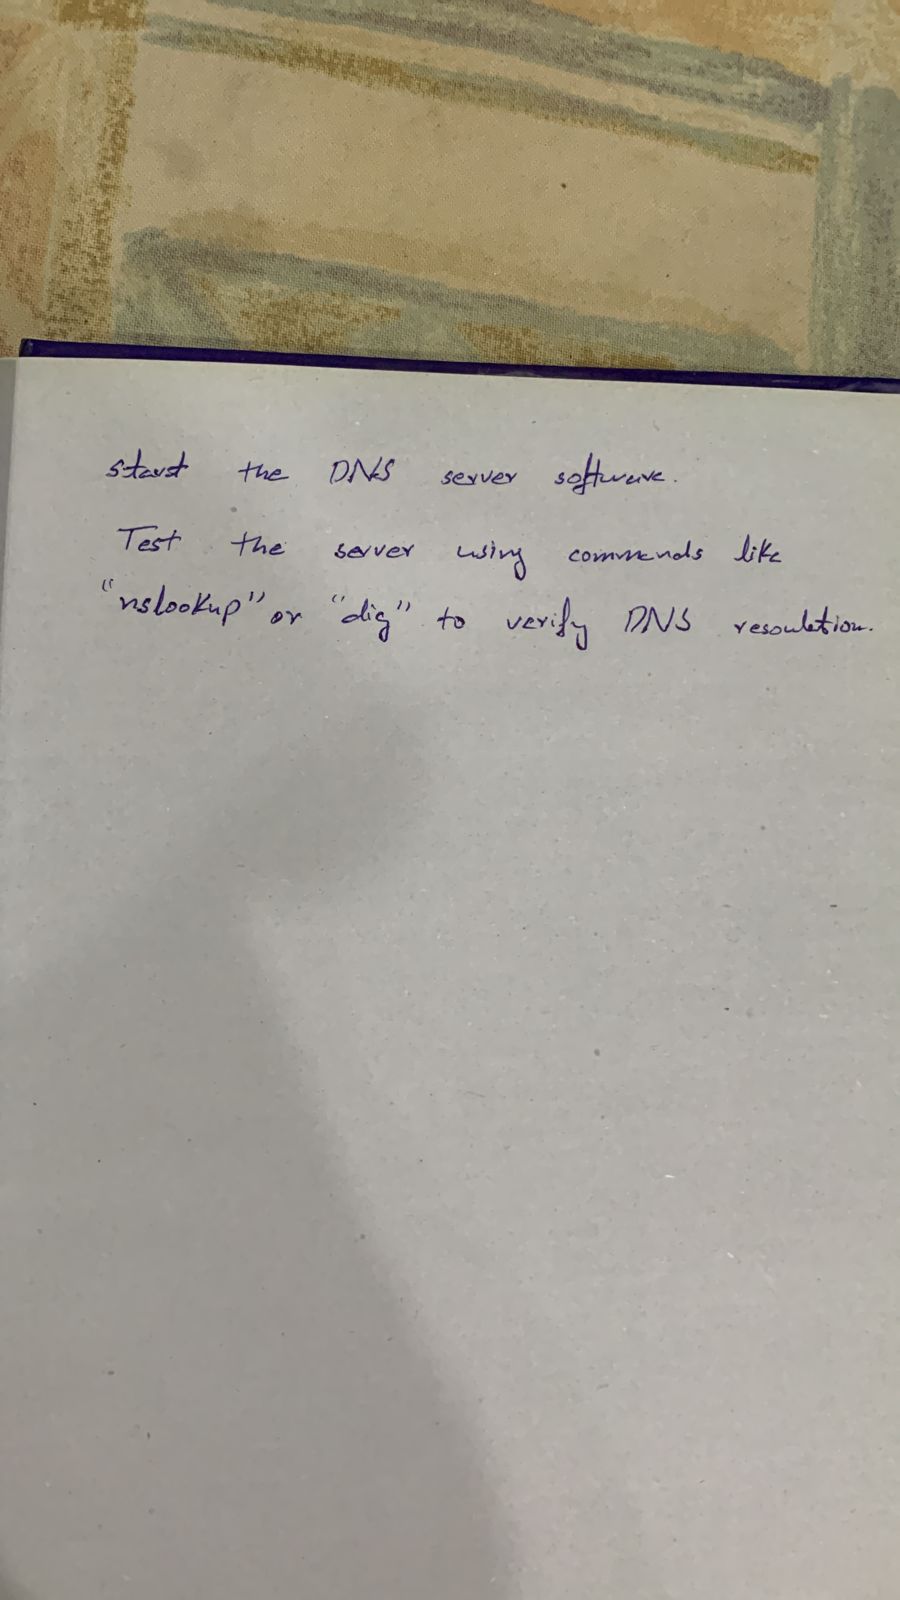 start the DNS server software.
Test the server using commends like
"nslookup" or "dig" to verify DNS resouletion.